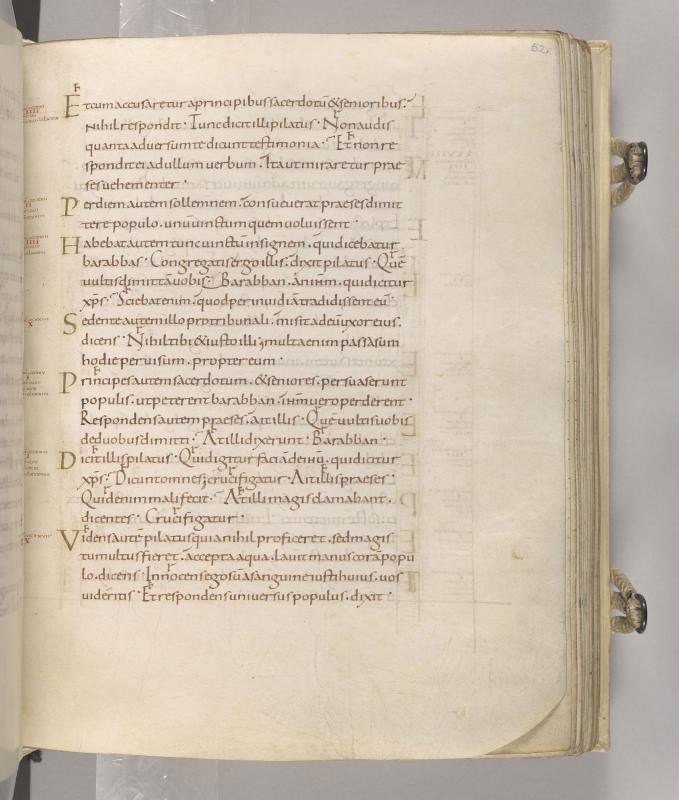 52
Et cum accusaretur a principibus sacerdotū & senioribus.
Nihil respondit. Tunc dicit illi pilatus. Non audis
quanta adversum te dicunt testimonia. Et non re
spondit ei ad ullum verbum. Ita ut miraretur prae
ses vehementer.
Per diem autem sollemnem. consueverat praeses dimit
tere populo. unum vinctum quem voluissent.
Habebat autem tunc vinctū insignem. qui dicebatur
barabbas. Congregatis ergo illis. dixit pilatus. Quē
vultis dimittā vobis. Barabban. an ihm̄. qui dicitur
xp̄s. Sciebat enim. quod per invidiā tradidissent eū.
Sedente autem illo pro tribunali. misit ad eū uxor eius.
dicens. Nihil tibi & iusto illi; multa enim passa sum
hodie per visum. propter eum.
Principes autem sacerdotum. & seniores. persuaserunt
populis. ut peterent barabban. ihm̄ vero perderent.
Respondens autem praeses. ait illis. Quē vultis vobis
de duobus dimitti. At illi dixerunt. Barabban.
Dicit illis pilatus. Quid igitur faciā de ihū. qui dicitur
xp̄s. Dicunt omnes; crucifigatur. Ait illis praeses.
Quid enim mali fecit. At illi magis clamabant.
dicentes. Crucifigatur.
Videns autē pilatus quia nihil proficeret. sed magis
tumultus fieret. accepta aqua. lavit manus corā popu
lo. dicens. Innocens ego sū a sanguine iusti huius. vos
videritis. Et respondens universus populus. dixit.